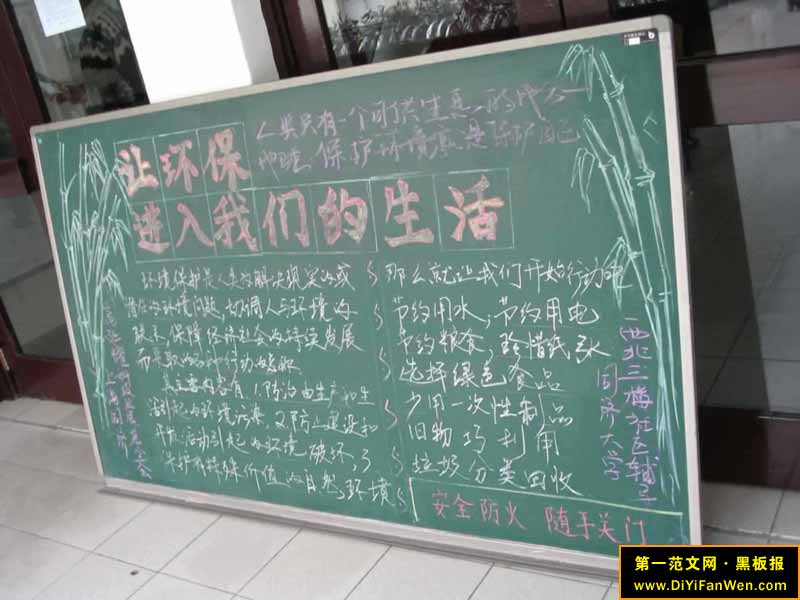 人类只有一个可供生息的
地球,保护环境就是保护自己
让环保
进入我们的生活
环境保护是人类为解决现实的或
潜在的环境问题,协调人与环境的
关系,保障经济社会的持续发展
而采取的各种行动的总称
其主要内容有 1.防治由生产和生
活引起的环境污染,2.防止建设和
开发活动引起的环境破坏,3
保护有特殊价值的自然环境
那么就让我们开始行动吧
节约用水,节约用电
节约粮食,珍惜纸张
选择绿色食品
少用一次性制品
旧物巧利用
垃圾分类回收
安全防火 随手关门
西北三楼社区辅导
同济大学
第一范文网·黑板报
www.DiYiFanWen.com